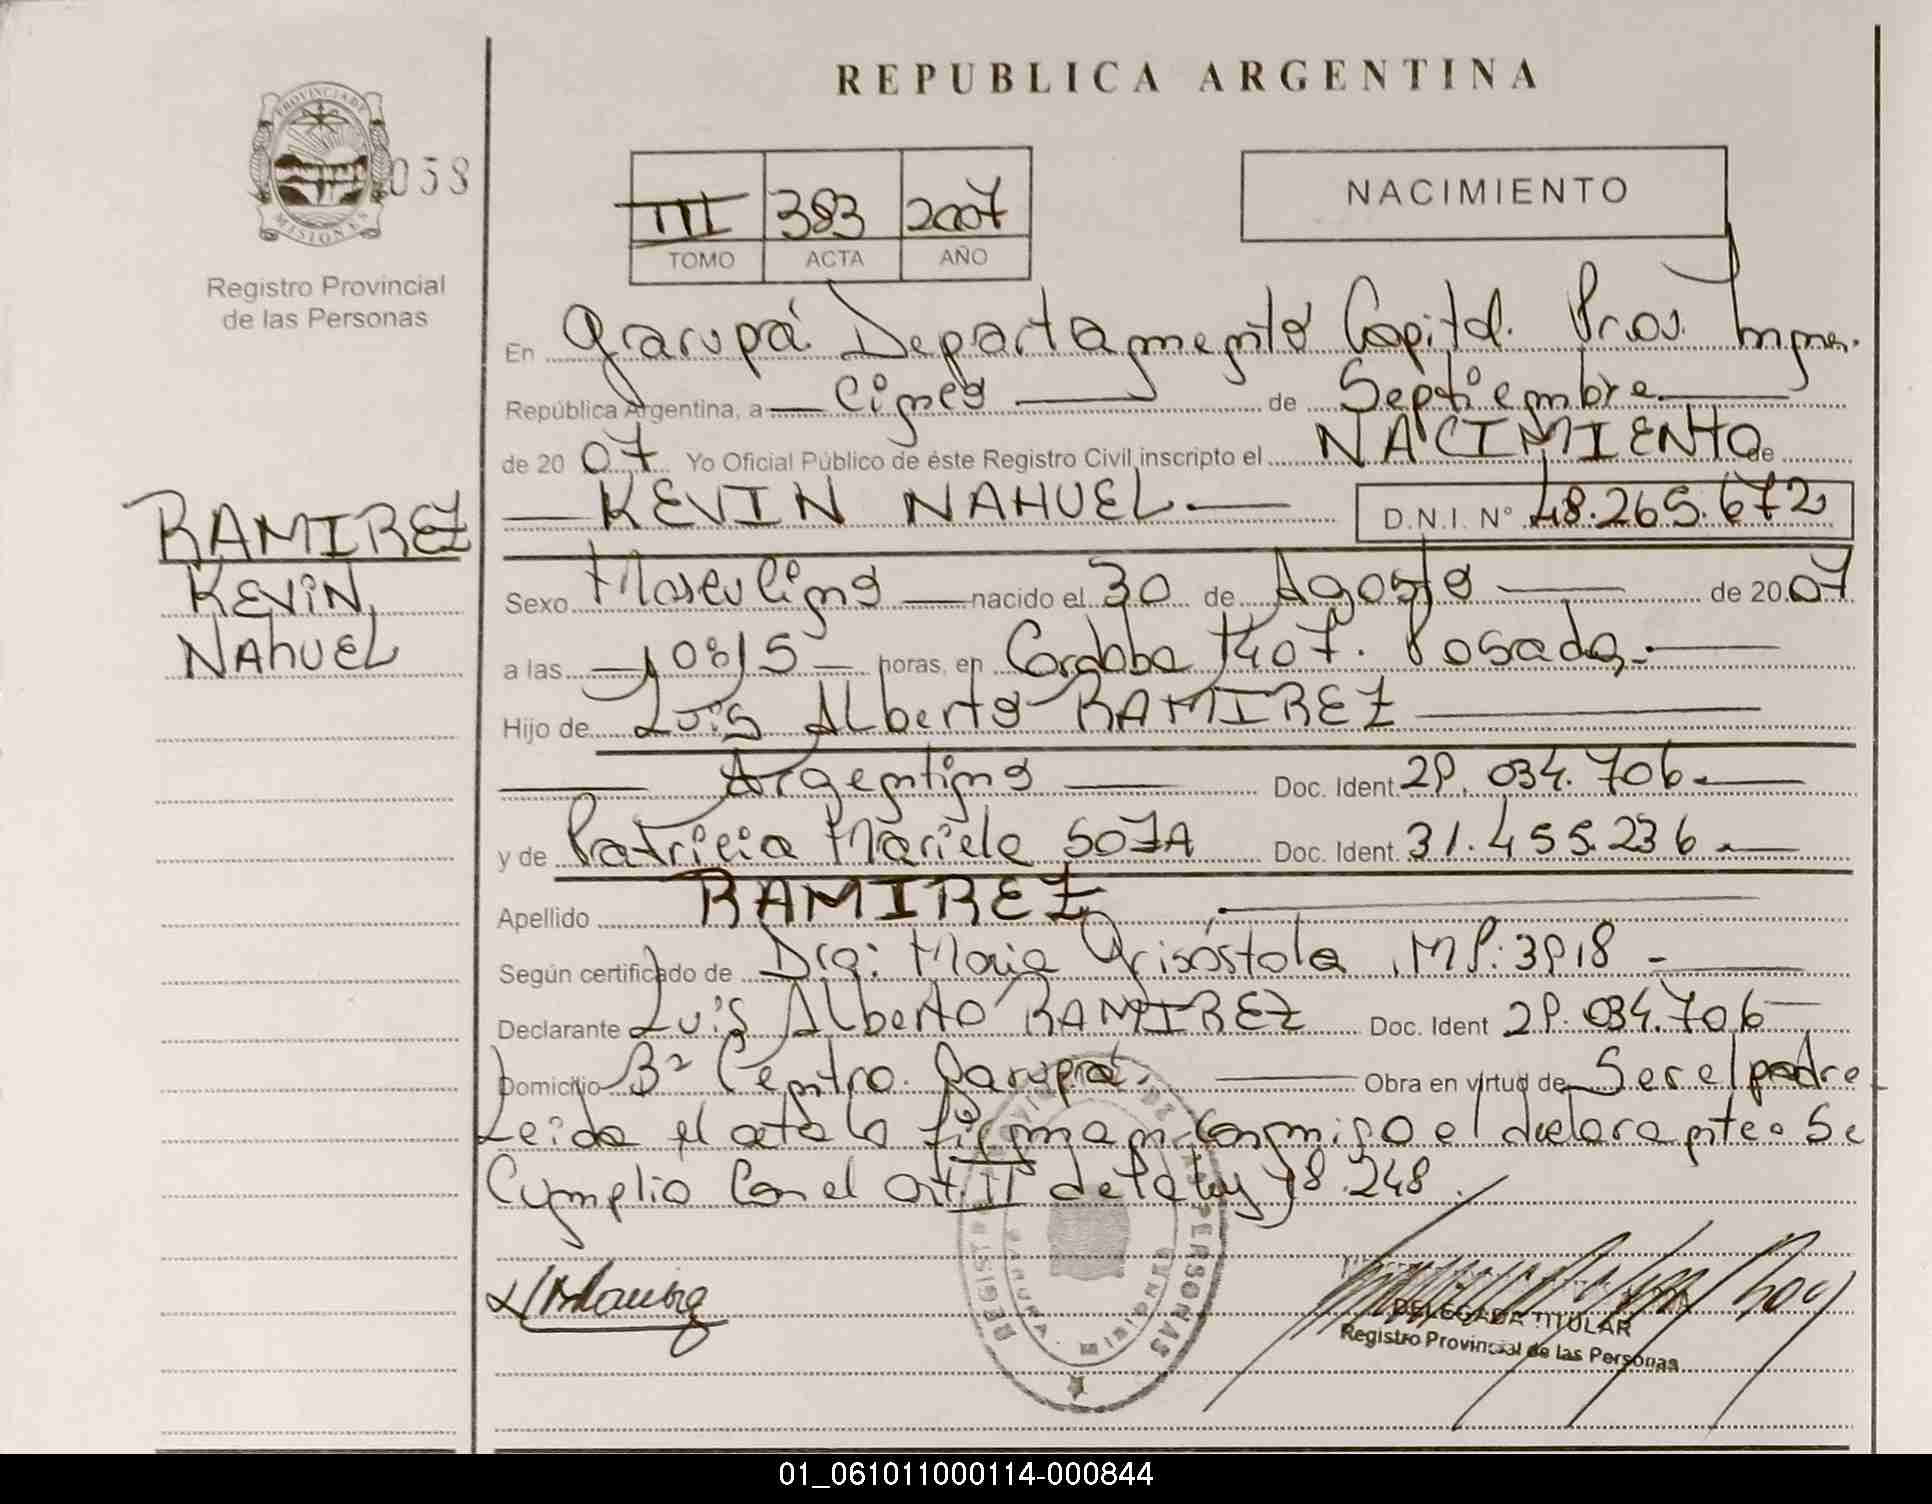 REPUBLICA ARGENTINA
PROVINCIA DE
MISIONES
058
Registro Provincial
de las Personas
III 383 2007
TOMO ACTA AÑO
NACIMIENTO
En Garupá Departamento Capital. Prov. Mnes.
República Argentina, a cinco de Septiembre
de 2007 Yo Oficial Público de éste Registro Civil inscripto el NACIMIENTO de
KEVIN NAHUEL D.N.I. Nº 48.265.672
RAMIREZ
KEVIN
NAHUEL
Sexo Masculino nacido el 30 de Agosto de 2007
a las 10:15 horas, en Cordoba 1407. Posadas.
Hijo de Luis Alberto RAMIREZ
Argentino Doc. Ident. 29.034.706
y de Patricia Mariela SOZA Doc. Ident. 31.455.236
Apellido RAMIREZ
Según certificado de Dra: Maria Grisóstola MP: 3918
Declarante Luis Alberto RAMIREZ Doc. Ident 29.034.706
Domicilio Bº Centro. Garupá. Obra en virtud de Ser el padre
Leida el acta la firman conmigo el declarante. Se
Cumplio Con el art. II de la ley 18.248.
DELEGADA TITULAR
Registro Provincial de las Personas
01_061011000114-000844